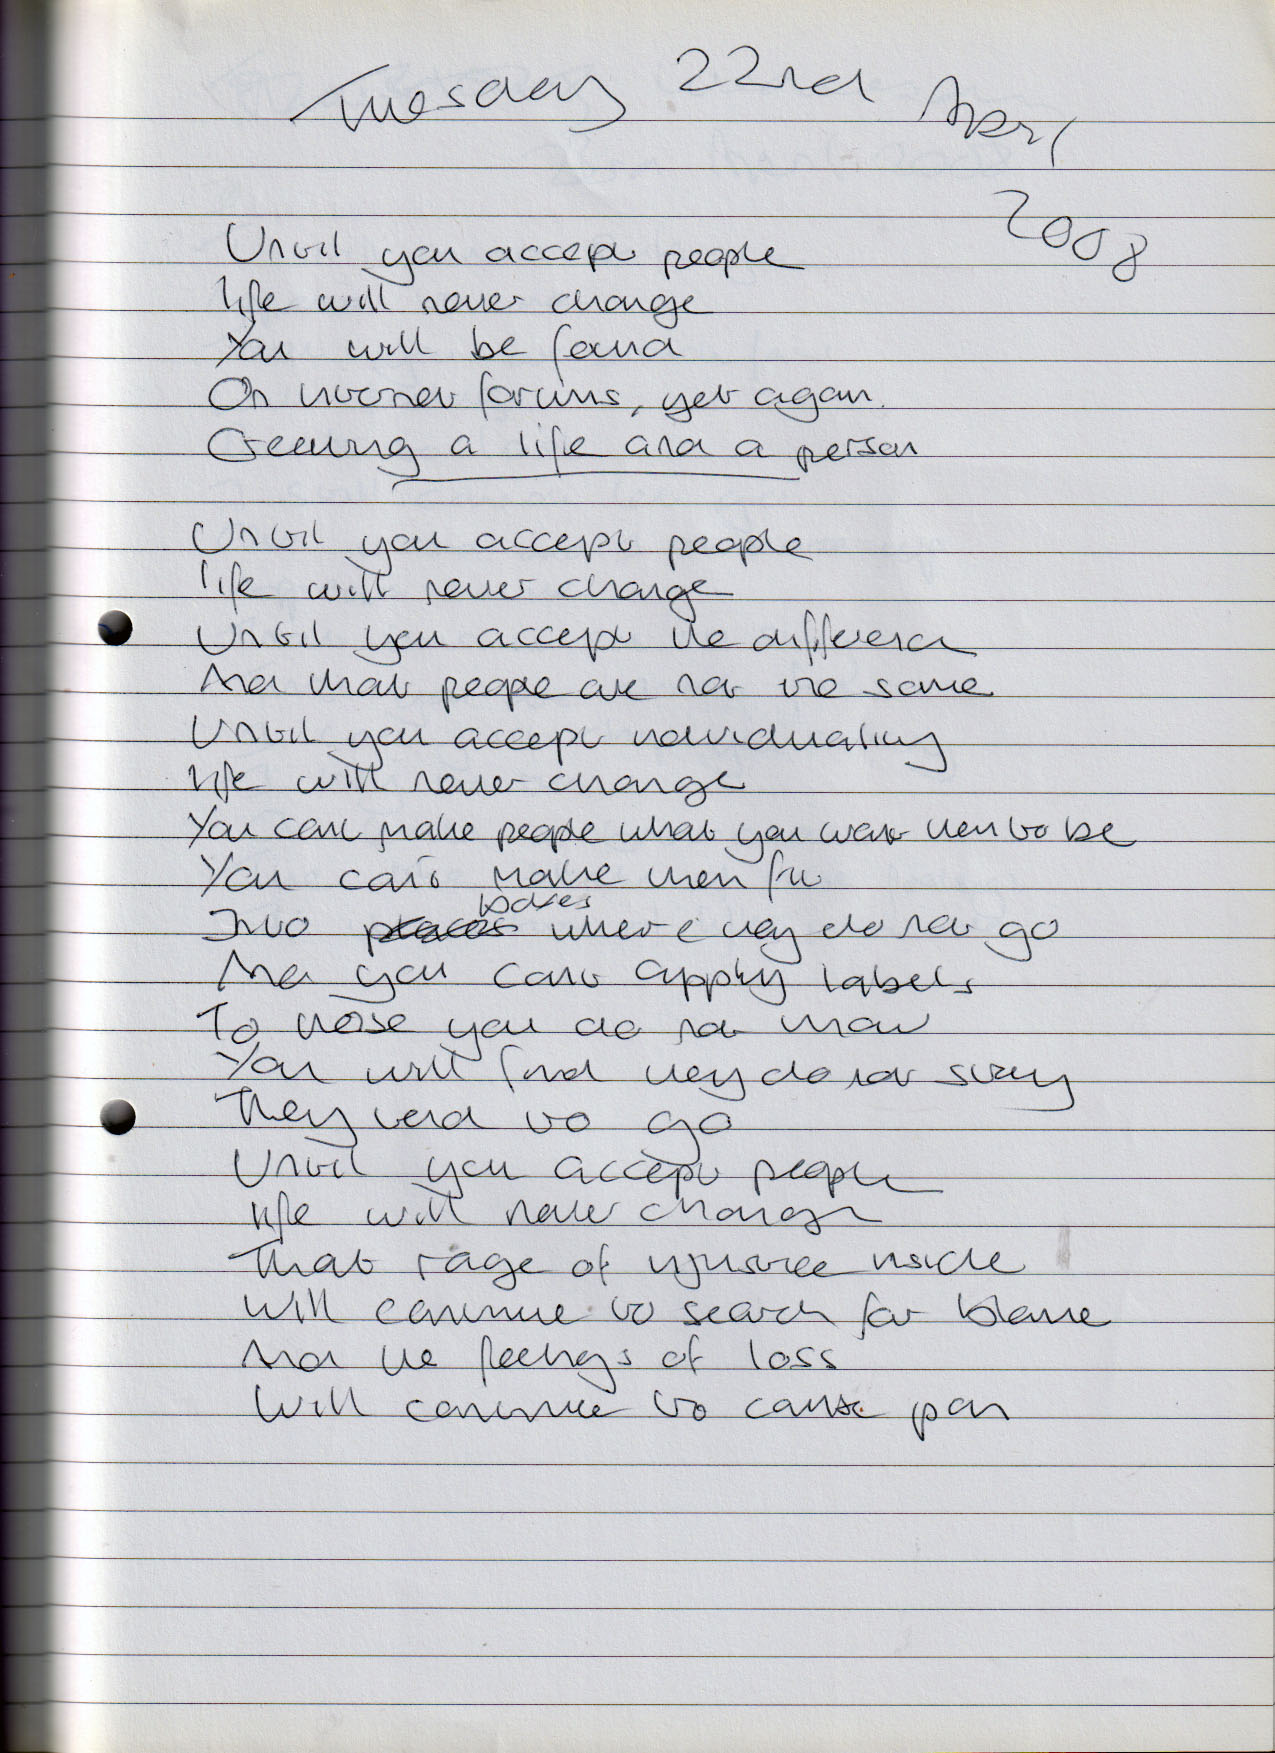 Tuesday 22nd April
2008
Until you accept people
life will never change
You will be found
On internet forums, yet again.
Creating a life and a person
Until you accept people
life will never change
Until you accept the difference
And that people are not the same
Until you accept individuality
life will never change
You cant make people what you want them to be
You can't make them fit
Into boxes where they do not go
And you cant apply labels
To those you do not know
You will find they do not stay
They tend to go
Until you accept people
life will never change
That rage of injustice inside
Will continue to search for blame
And the feelings of loss
Will continue to cause pain